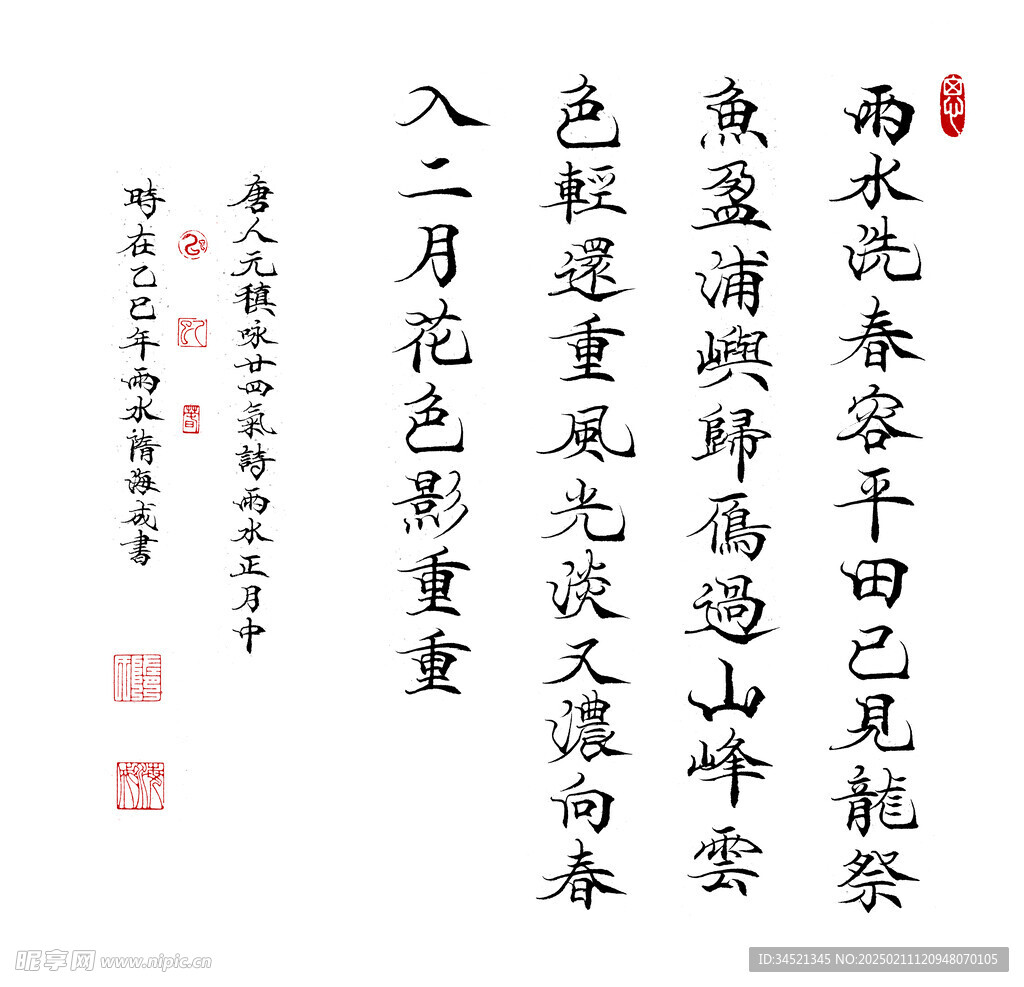 雨水洗春容平田已見龍祭
魚盈浦嶼歸鴈過山峰雲
色輕還重風光淡又濃向春
入二月花色影重重
唐人元稹咏廿四氣詩雨水正月中
時在乙巳年雨水隋海成書
昵享网 www.nipic.cn
ID:34521345 NO:20250211120948070105